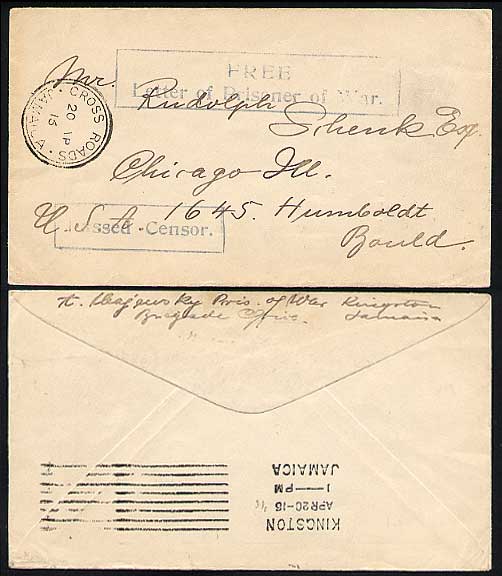 FREE
Letter of Prisoner of War.
Mr. Rudolph
Schenk Esq.
Chicago Ill.
U.S.A. 1645. Humboldt
Bould.
CROSS ROADS
20 AP
15
JAMAICA
Passed Censor.
Pris. of War Kingston
Brigade Office. Jamaica
KINGSTON
APR20-15
1—PM
JAMAICA